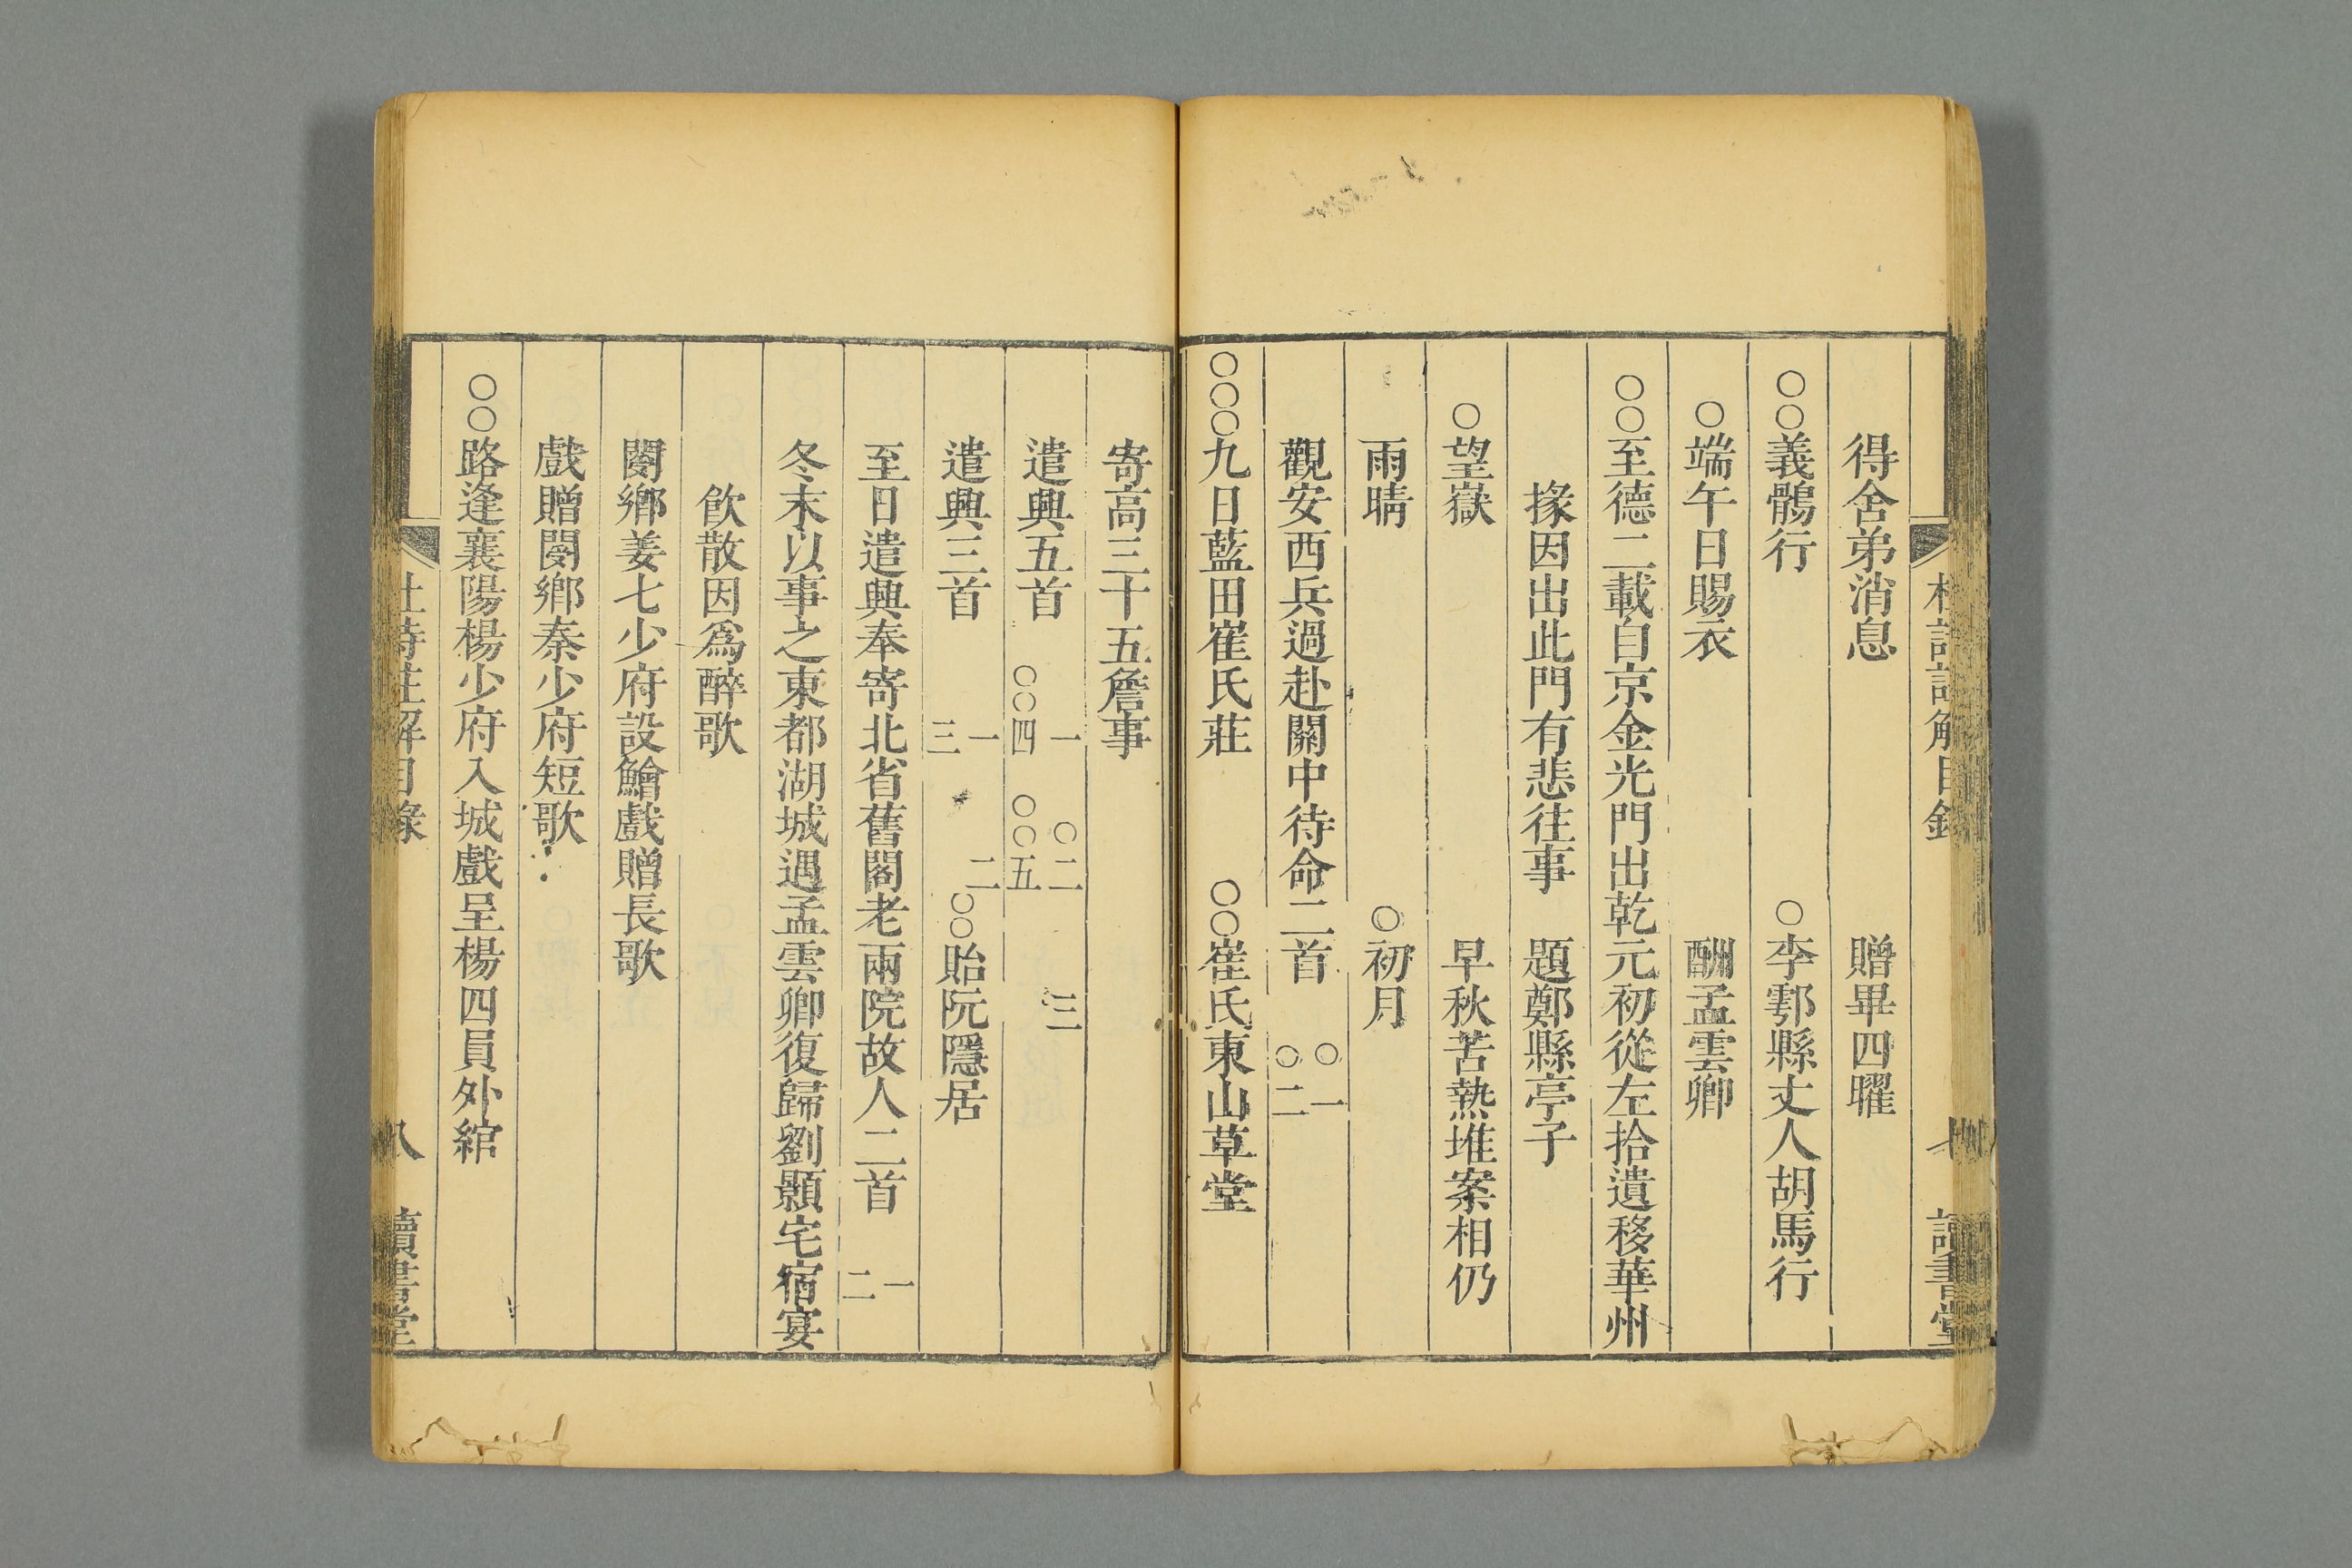 得舍弟消息　贈畢四曜
○○義鶻行　○李鄠縣丈人胡馬行
○端午日賜衣　酬孟雲卿
○○至德二載自京金光門出乾元初從左拾遺移華州
掾因出此門有悲往事　題鄭縣亭子
○望嶽　早秋苦熱堆案相仍
雨晴　○初月
觀安西兵過赴關中待命二首　○一　○二
○○○九日藍田崔氏莊　○○崔氏東山草堂
寄高三十五詹事
遣興五首　一　○二　三　○○四　○○五
遣興三首　一　二　三　○○貽阮隱居
至日遣興奉寄北省舊閣老兩院故人二首　一　二
冬末以事之東都湖城遇孟雲卿復歸劉顥宅宿宴
飲散因爲醉歌
閿鄉姜七少府設鱠戲贈長歌
戲贈閿鄉秦少府短歌
○○路逢襄陽楊少府入城戲呈楊四員外綰
杜詩註解目錄　八　讀書堂